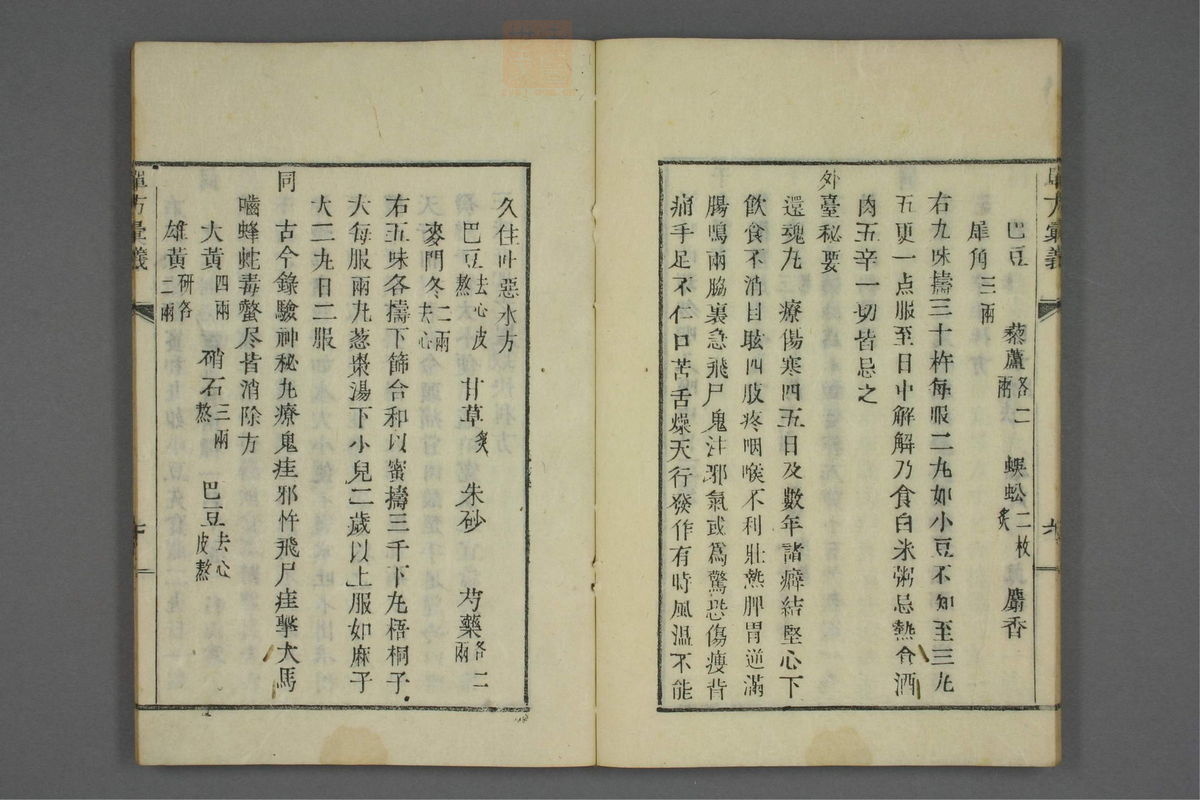 巴豆 藜蘆各二兩 蜈蚣二枚炙 麝香
犀角三兩
右九味擣三十杵每服二丸如小豆不知至三丸
五更一点服至日中解解乃食白米粥忌熱食酒
肉五辛一切皆忌之
外臺秘要
還魂丸 療傷寒四五日及數年諸癖結堅心下
飲食不消目眩四肢疼咽喉不利壯熱脾胃逆滿
腸鳴兩脇裏急飛尸鬼注邪氣或為驚恐傷瘦背
痛手足不仁口苦舌燥天行發作有時風溫不能
久住吐惡水方
巴豆去心皮熬 甘草炙 朱砂 芍藥各二兩
麥門冬二兩去心
右五味各擣下篩合和以蜜擣三千下丸梧桐子
大每服兩丸葱棗湯下小兒二歲以上服如麻子
大二丸日二服
同 古今錄驗神秘丸療鬼疰邪忤飛尸疰擊犬馬
嚙蜂蛇毒螫尽皆消除方
大黃四兩 硝石三兩熬 巴豆去心皮熬
雄黃研各二兩
單方彙義